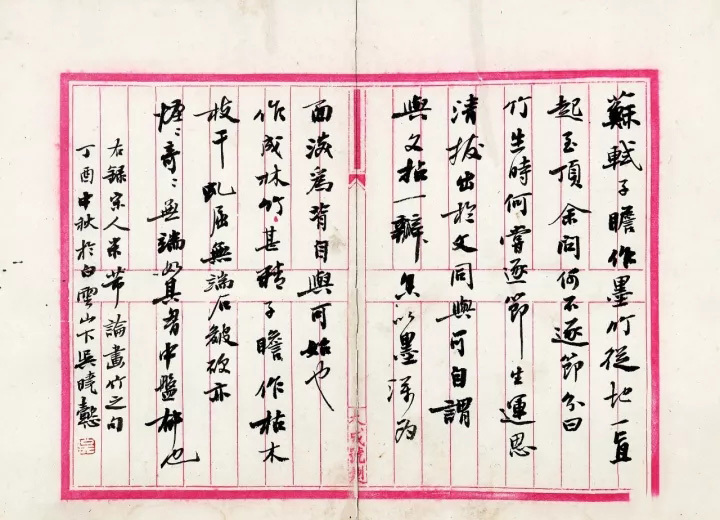 蘇軾子瞻作墨竹從地一直
起至頂余問何不逐節分曰
竹生時何嘗逐節生運思
清拔出於文同與可自謂
與文拈一瓣香以墨深為
面淡為背自與可始也
作成林竹甚精子瞻作枯木
枝干虬屈無端石皴硬亦
怪怪奇奇無端如其胸中盤郁也
右錄宋人米芾論畫竹之句
丁酉中秋於白雲山下吳曉懿
大成號製